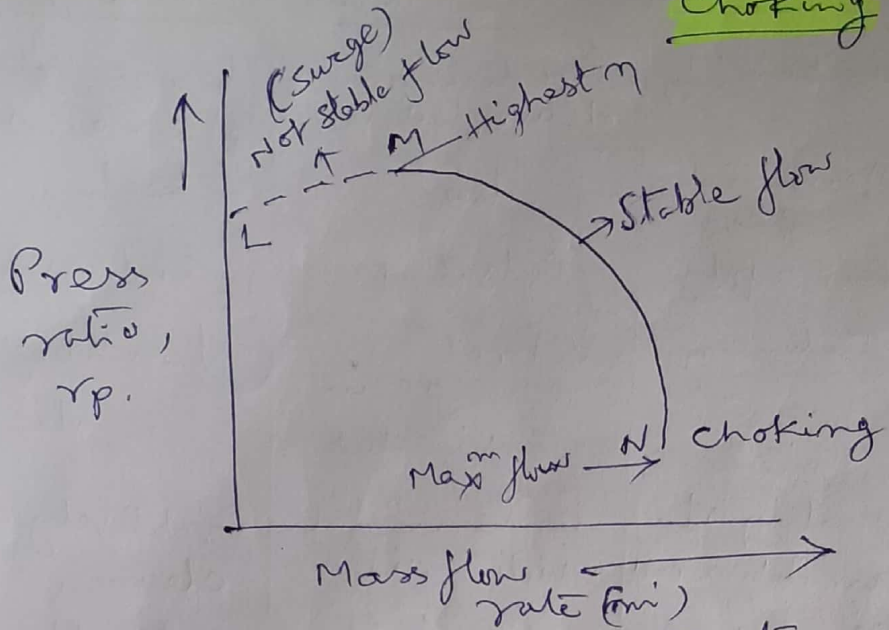 Choking
(Surge)
Not stable flow
M
Highest η
Stable flow
L
Press
ratio,
rp.
N
Choking
Maxᵐ flow
Mass flow
rate (ṁ)